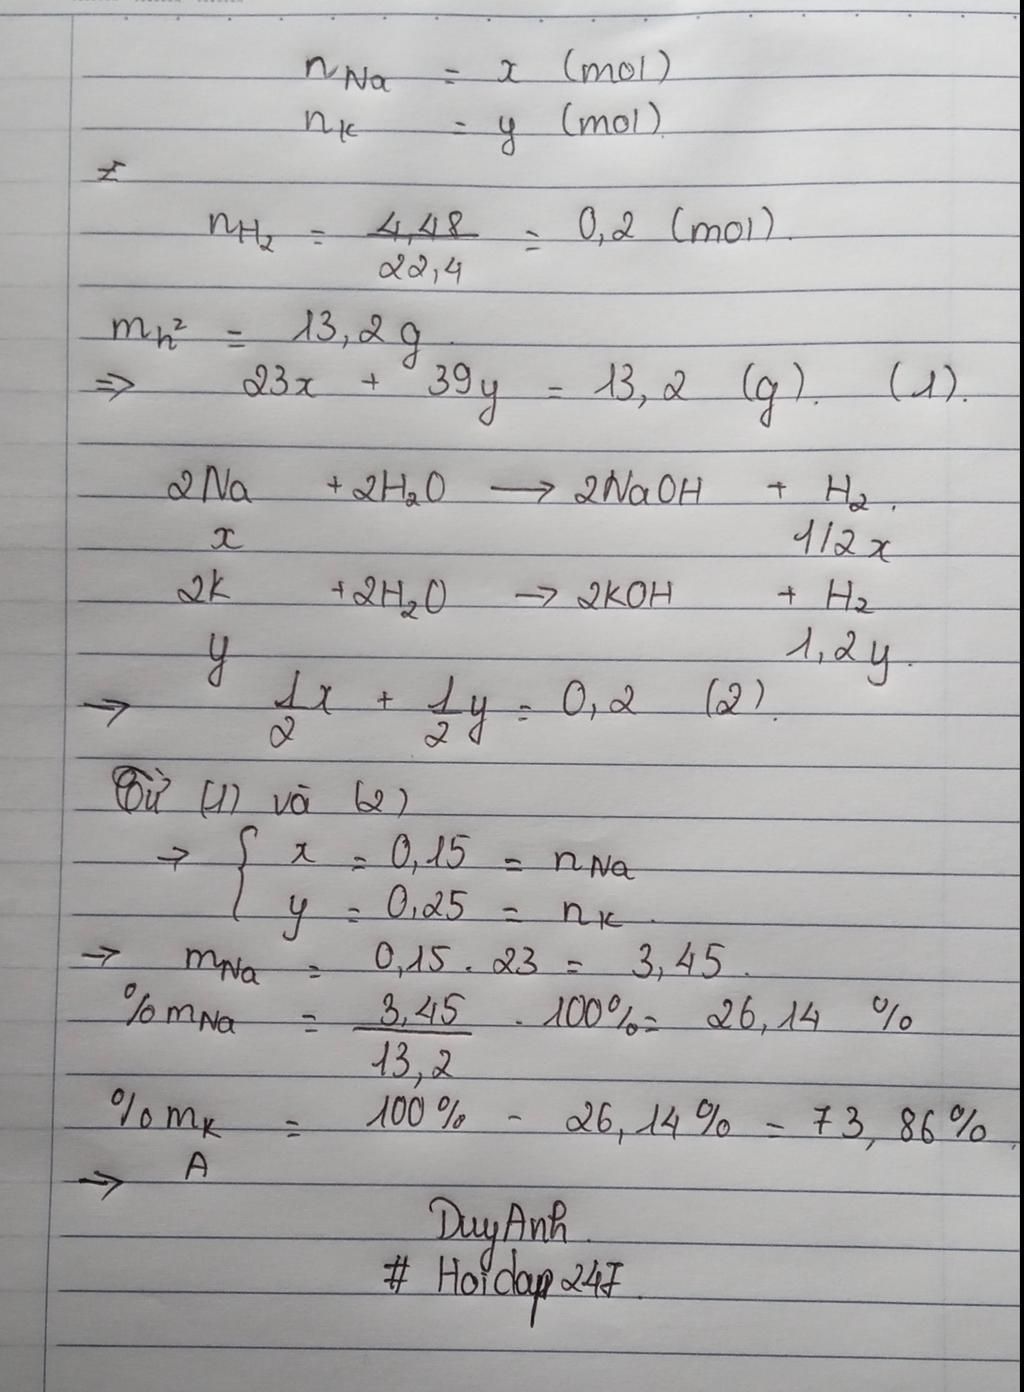 nNa = x (mol)
nK = y (mol)
nH2 = 4,48/22,4 = 0,2 (mol).
mh² = 13,2g
=> 23x + 39y = 13,2 (g). (1).
2Na + 2H2O → 2NaOH + H2.
x 1/2x
2K + 2H2O → 2KOH + H2
y 1,2y.
→ 1/2x + 1/2y = 0,2 (2).
Từ (1) và (2)
→ { x = 0,15 = nNa
y = 0,25 = nK.
→ mNa = 0,15.23 = 3,45.
%mNa = 3,45/13,2 . 100% = 26,14 %
%mK = 100% - 26,14% = 73,86%.
→ A
DuyAnh.
# Hoidap247.